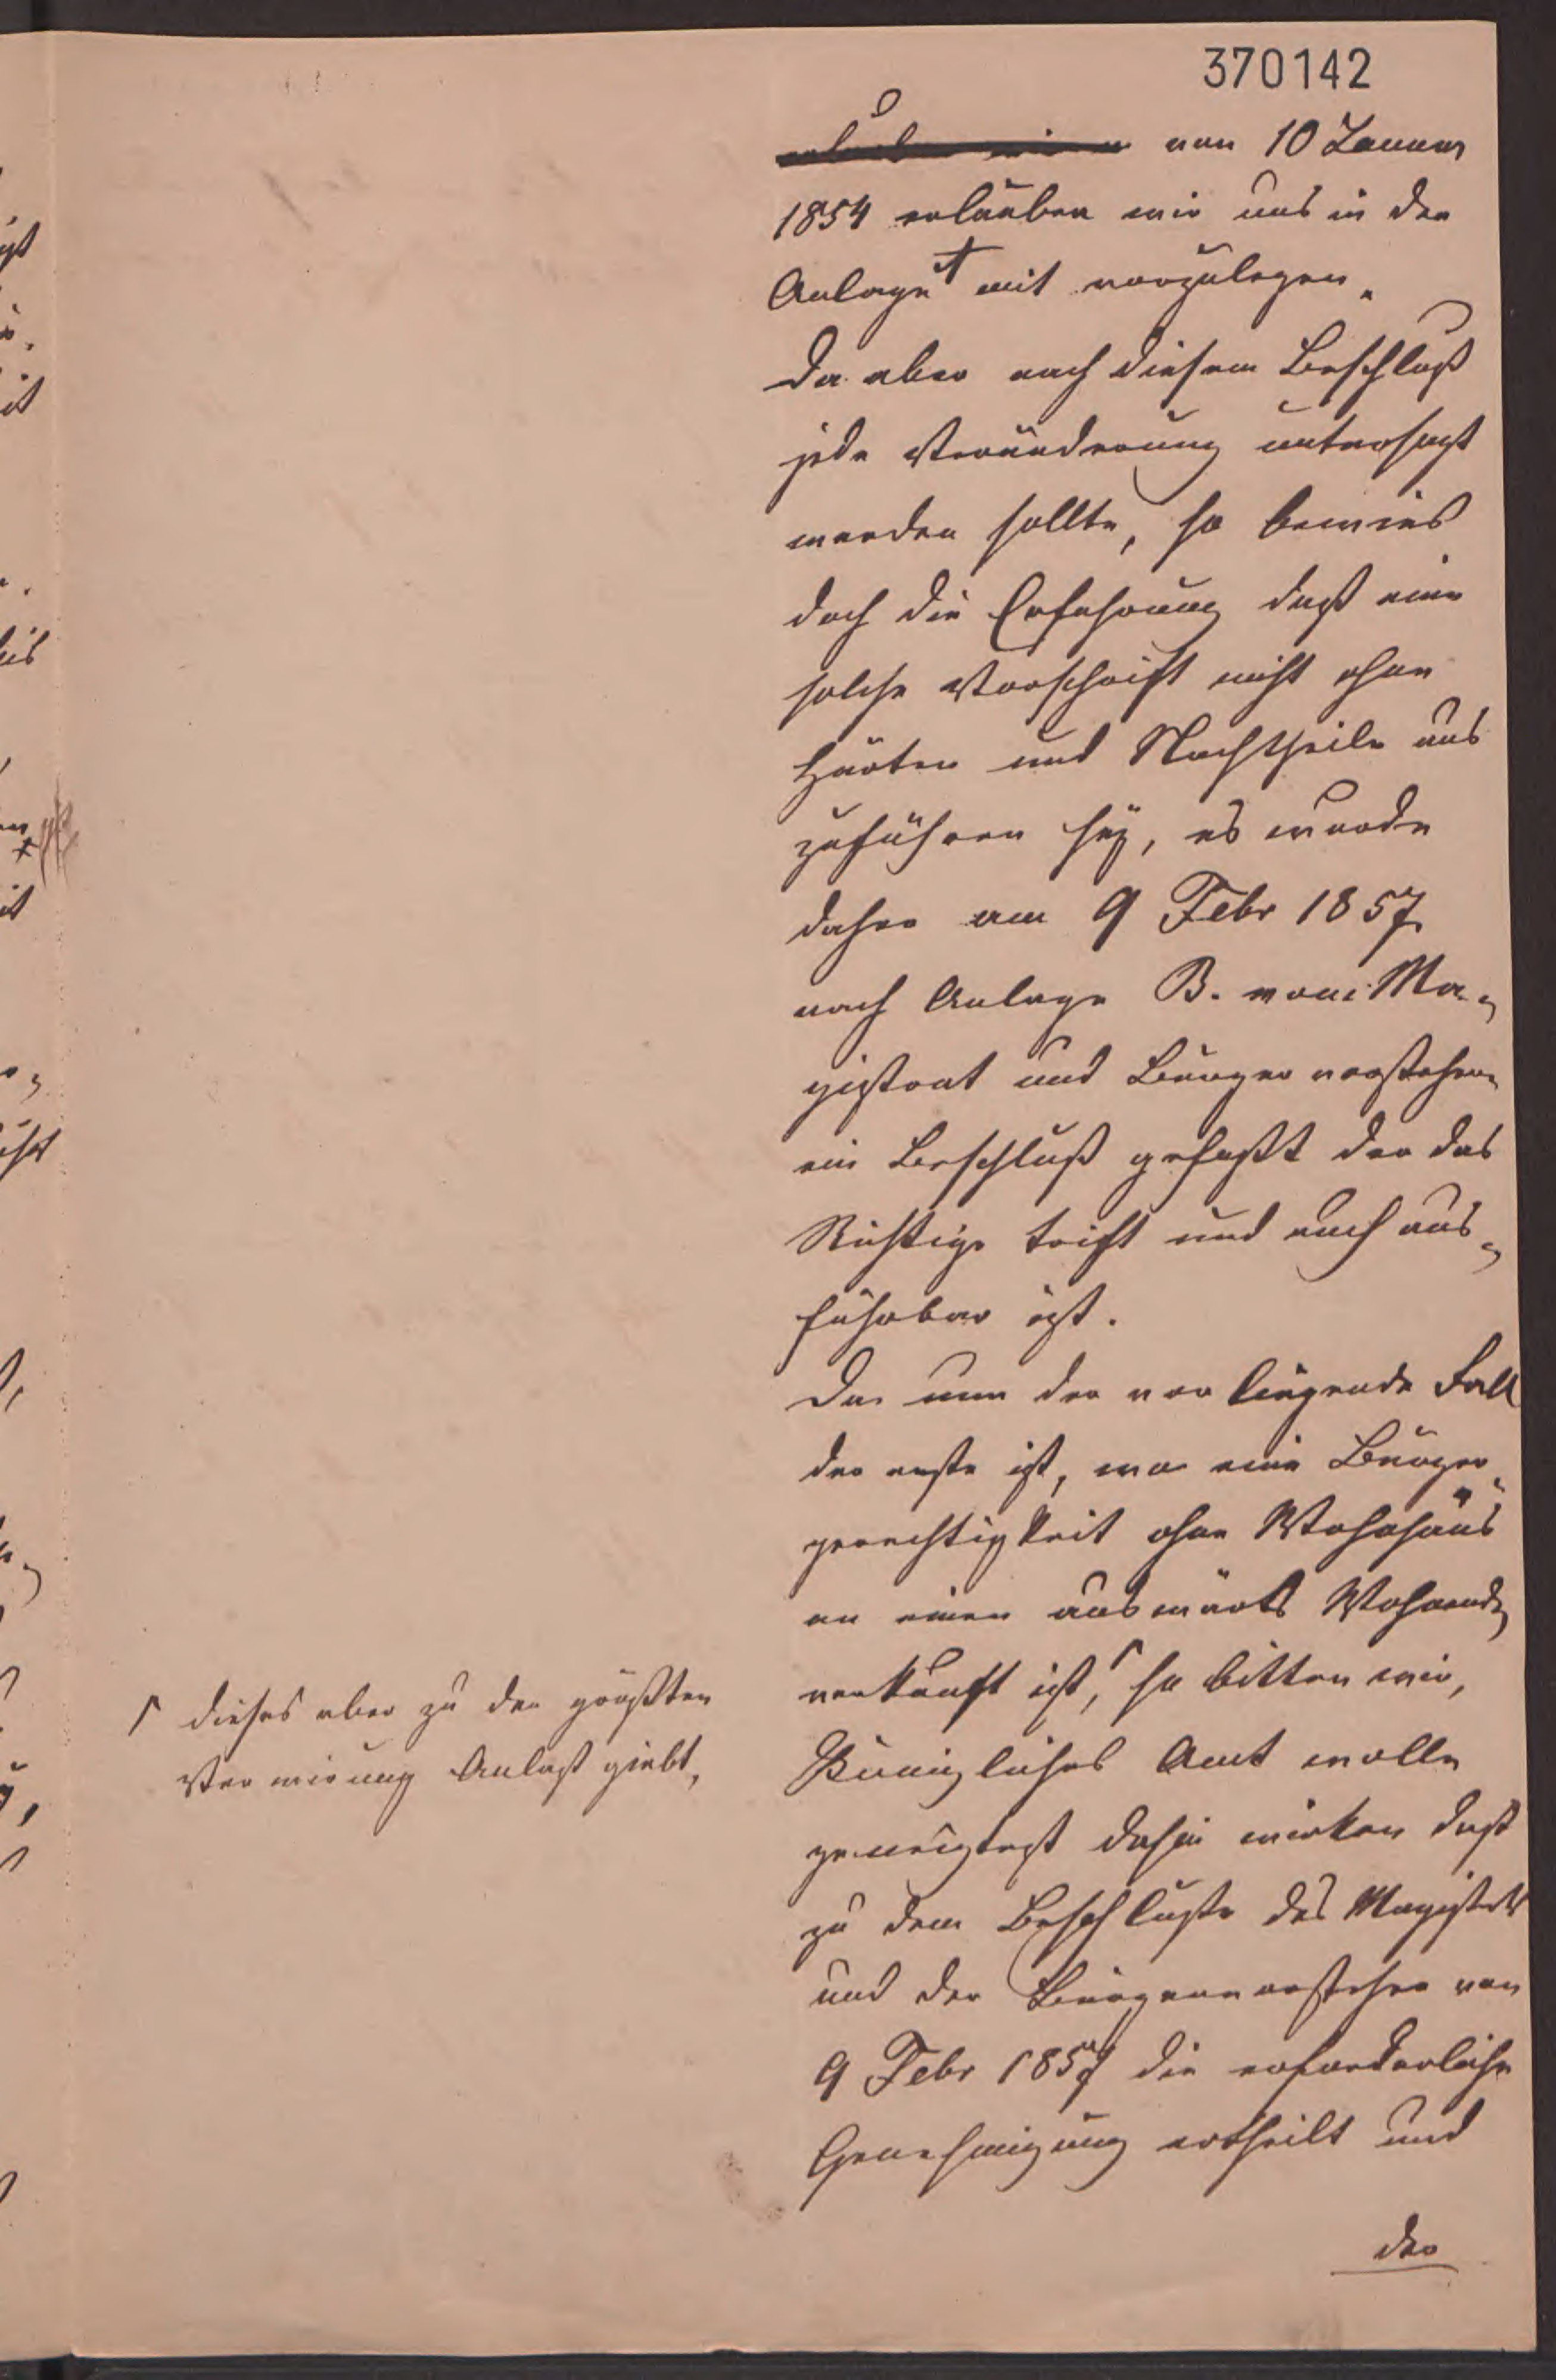 370142
erlauben wir von 10 Januar
1854 erlauben wir uns in der
Anlage A mit vorzulegen.
Da aber nach diesem Beschluß
jede Veränderung untersagt
werden sollte, so bewies
doch die Erfahrung daß eine
solche Vorschrift nicht ohne
Härten und Nachtheile aus
zuführen sey, es wurde
daher am 9 Febr 1857
nach Anlage B. vom Ma-
gistrat und Bürgervorstehern
ein Beschluß gefaßt der das
Richtige trift und auch aus-
führbar ist.
Da nun der vorliegende Fall
der erste ist, wo eine Bürger-
gerechtigkeit ohne Wohnhaus
an einen auswärts Wohnend
verkauft ist, so bitten wir,
Königliches Amt wolle
geneigtest dahin wirken daß
zu dem Beschluße des Magistrats
und der Bürgervorsteher von
9 Febr 1857 die erforderliche
Genehmigung ertheilt und
der
dieses aber zu der größten
Verwirung Anlaß giebt,